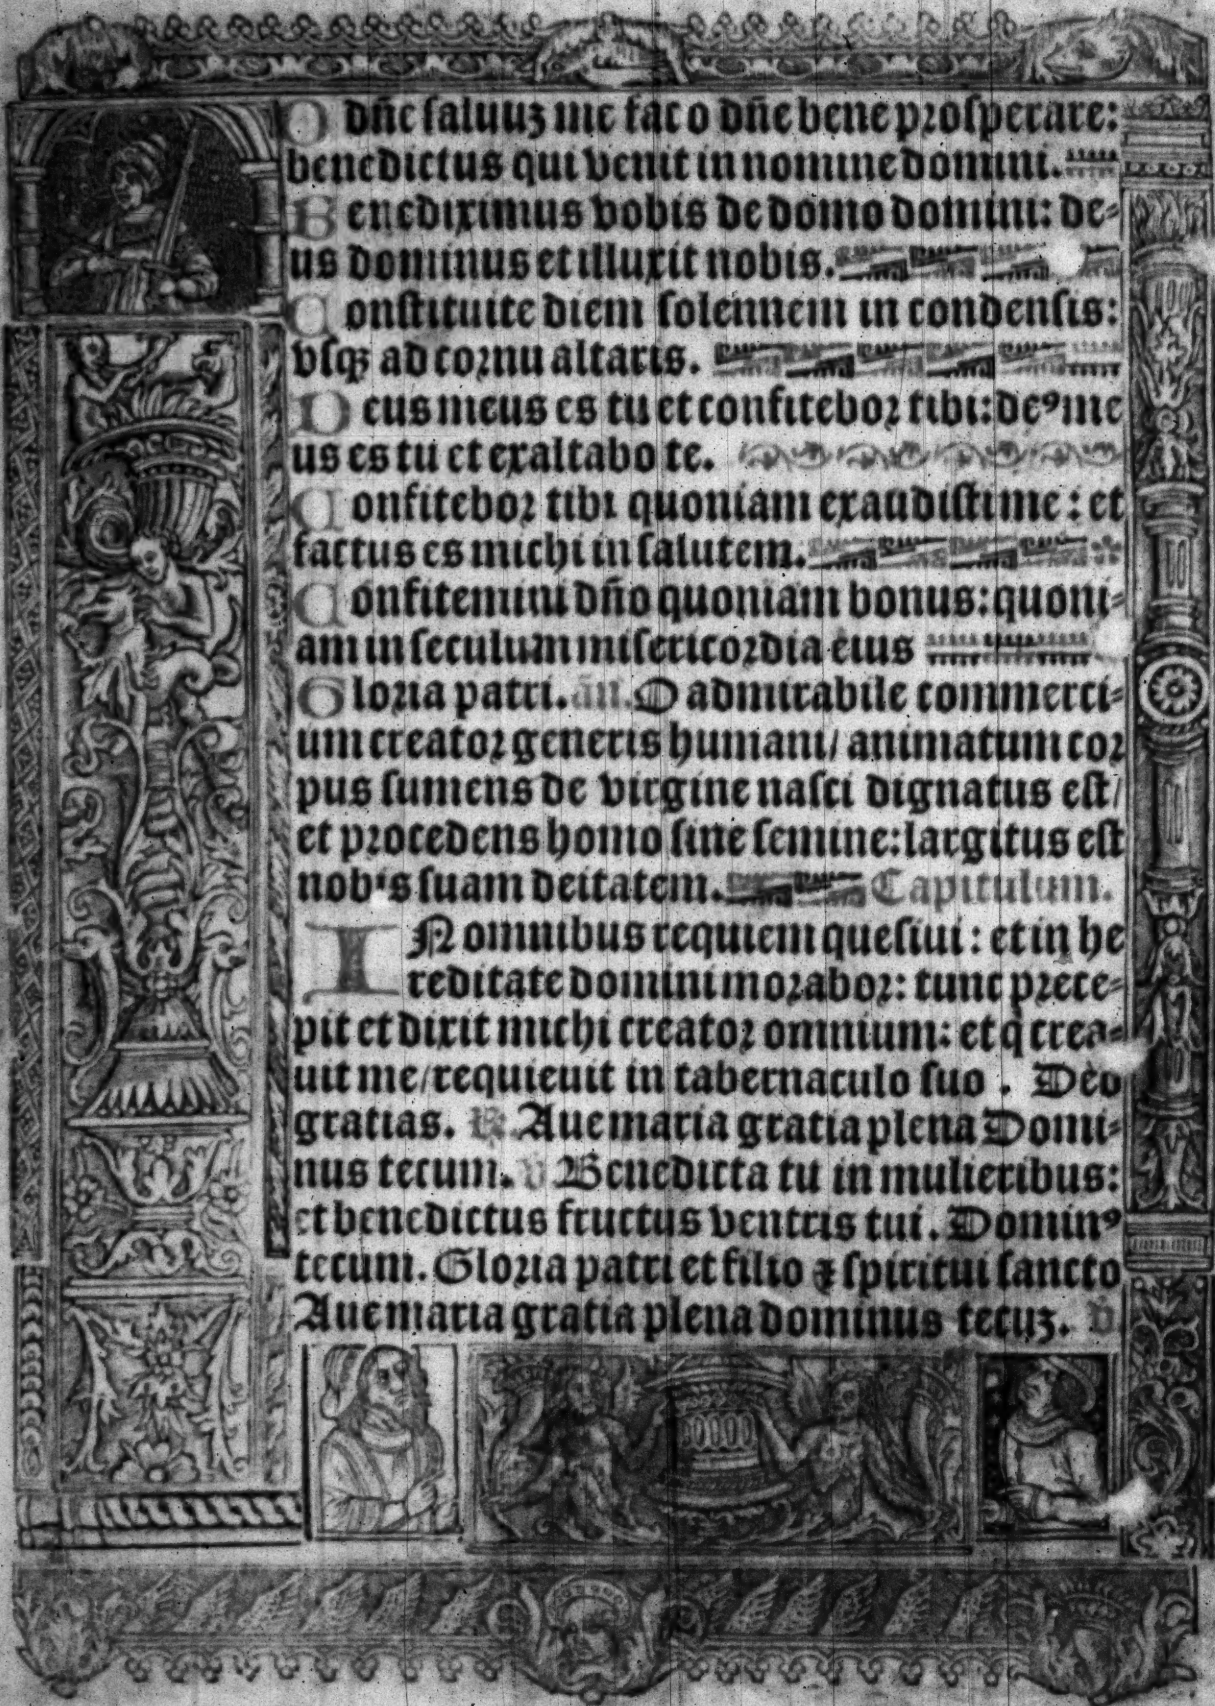 O dñe saluuʒ me fac o dñe bene prosperare:
benedictus qui venit in nomine domini.
Benediximus vobis de domo domini: de⸗
us dominus et illuxit nobis.
Constituite diem solennem in condensis:
vsqʒ ad cornu altaris.
Deus meus es tu et confitebor tibi: deꝰ me
us es tu et exaltabo te.
Confitebor tibi quoniam exaudisti me: et
factus es michi in salutem.
Confitemini dño quoniam bonus: quoni⸗
am in seculum misericordia eius
Gloria patri. añ. O admirabile commerci⸗
um creator generis humani/ animatum cor
pus sumens de virgine nasci dignatus est/
et procedens homo sine semine: largitus est
nobis suam deitatem. Capitulum.
IN omnibus requiem quesiui: et in he
reditate domini morabor: tunc prece⸗
pit et dixit michi creator omnium: et q̇ crea⸗
uit me/requieuit in tabernaculo suo. Deo
gratias. ℟. Aue maria gratia plena Domi⸗
nus tecum. ℣ Benedicta tu in mulieribus:
et benedictus fructus ventris tui. Dominꝰ
tecum. Gloria patri et filio ⁊ spiritui sancto
Aue maria gratia plena dominus tecuʒ. ℣